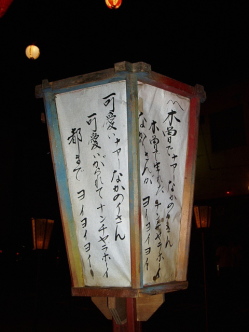 〽木曽のナァーなかのりさん
木曽で生れた ナンチャラホイ
なかのりさんが ヨイヨイヨイ
可愛いナァーなかのりさん
可愛いがられて ナンチャラホイ
都まで ヨイヨイヨイ